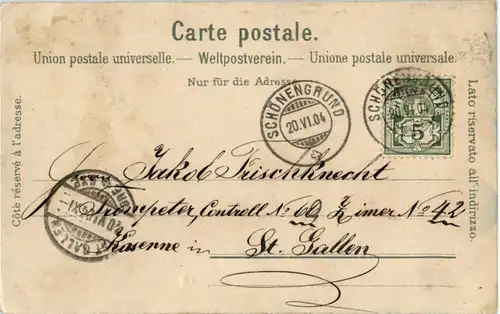 Carte postale.
Union postale universelle. — Weltpostverein. — Unione postale universale.
Nur für die Adresse.
Côté réservé à l'adresse.
Lato riservato all'indirizzo.
SCHÖNENGRUND
20.VI.04
5
Jakob Frischknecht
Trompeter, Controll No 60, Zimer No 42
Kaserne in St. Gallen